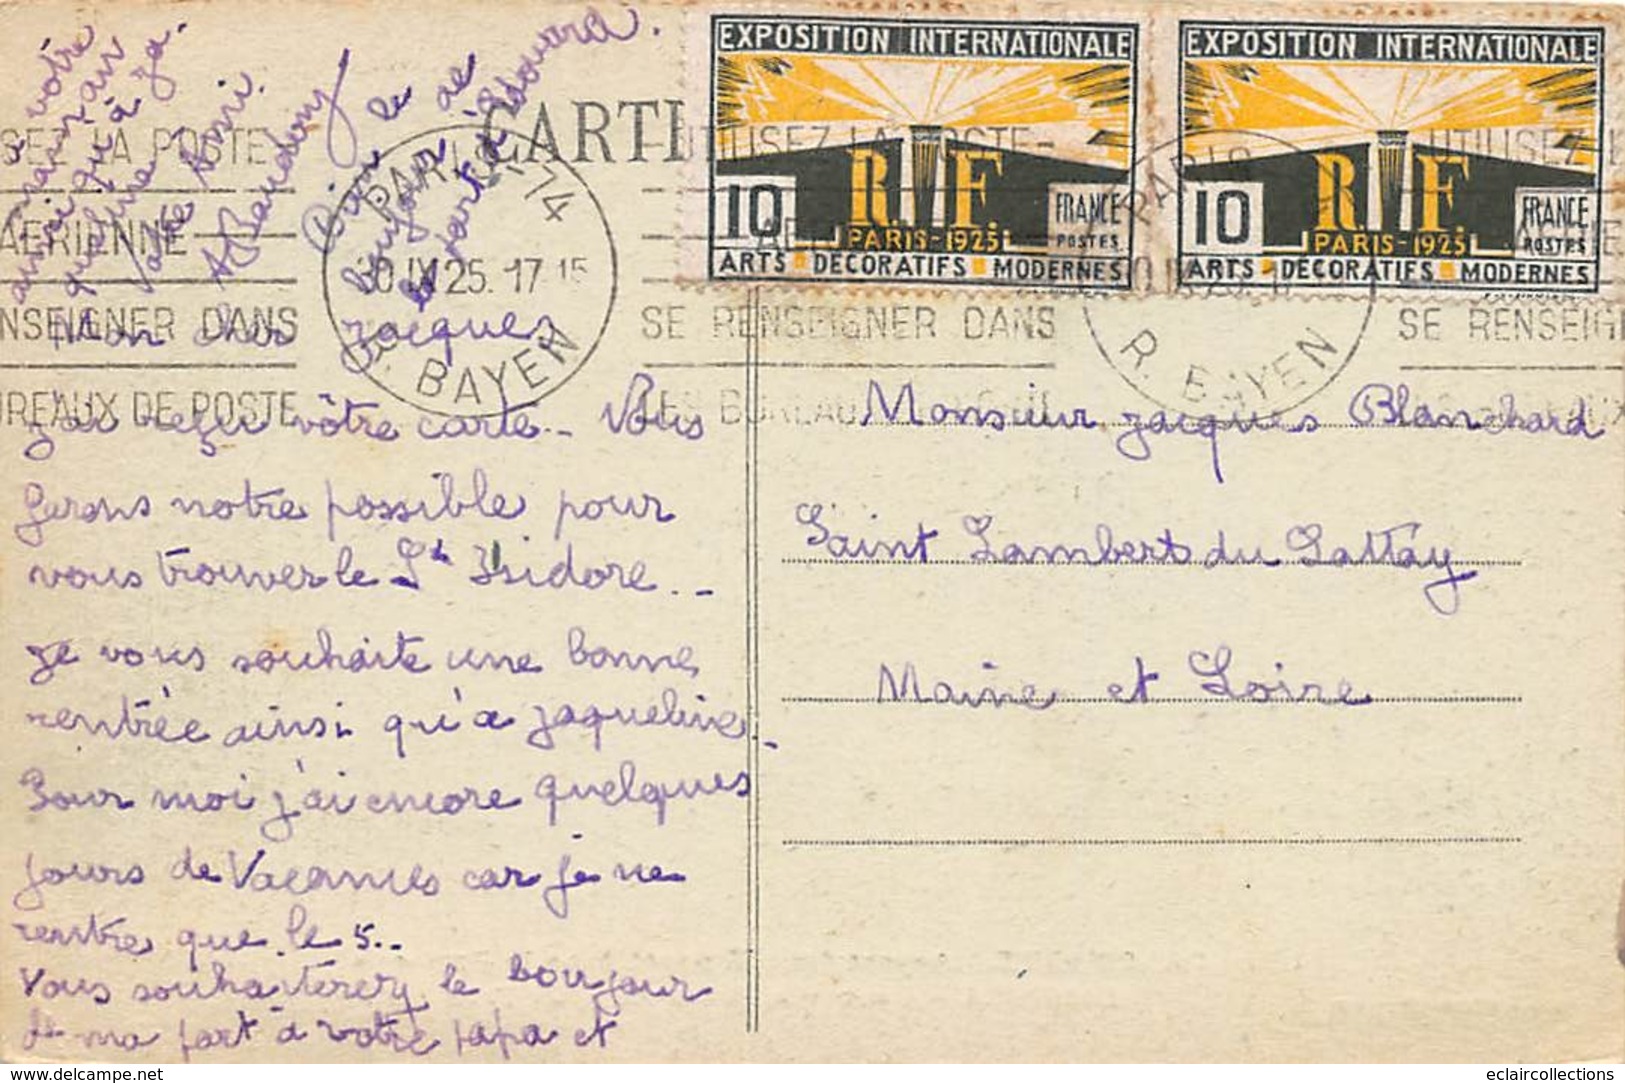 EXPOSITION INTERNATIONALE
R.F.
10
FRANCE
POSTES
PARIS-1925
ARTS DÉCORATIFS MODERNES
EXPOSITION INTERNATIONALE
R.F.
10
FRANCE
POSTES
PARIS-1925
ARTS DÉCORATIFS MODERNES
CARTE
SEZ LA POSTE
AÉRIENNE
NSEIGNER DANS
UREAUX DE POSTE
PARIS 74
0 IX 25. 17 15
R. BAYEN
UTILISEZ LA POSTE
SE RENSEIGNER DANS
LES BUREAUX
PARIS
R. BAYEN
UTILISEZ L
SE RENSEIG
Mon cher Jacques
J'ai reçu vôtre carte.. Vous
ferons notre possible pour
vous trouver le St Isidore..
je vous souhaite une bonne
rentrée ainsi qu'a jaqueline.
Pour moi j'ai encore quelques
jours de Vacances car je ne
rentre que le 5..
Vous souhaiterez le bonjour
de ma part à vôtre papa et
à votre
maman ainsi qu'à Ja-
queline
Votre Ami.
A Baudouy
Bien le
bonjour de
la part d'Edouard.
Monsieur Jacques Blanchard
Saint Lambert du Lattay
Maine et Loire
eclaircollections